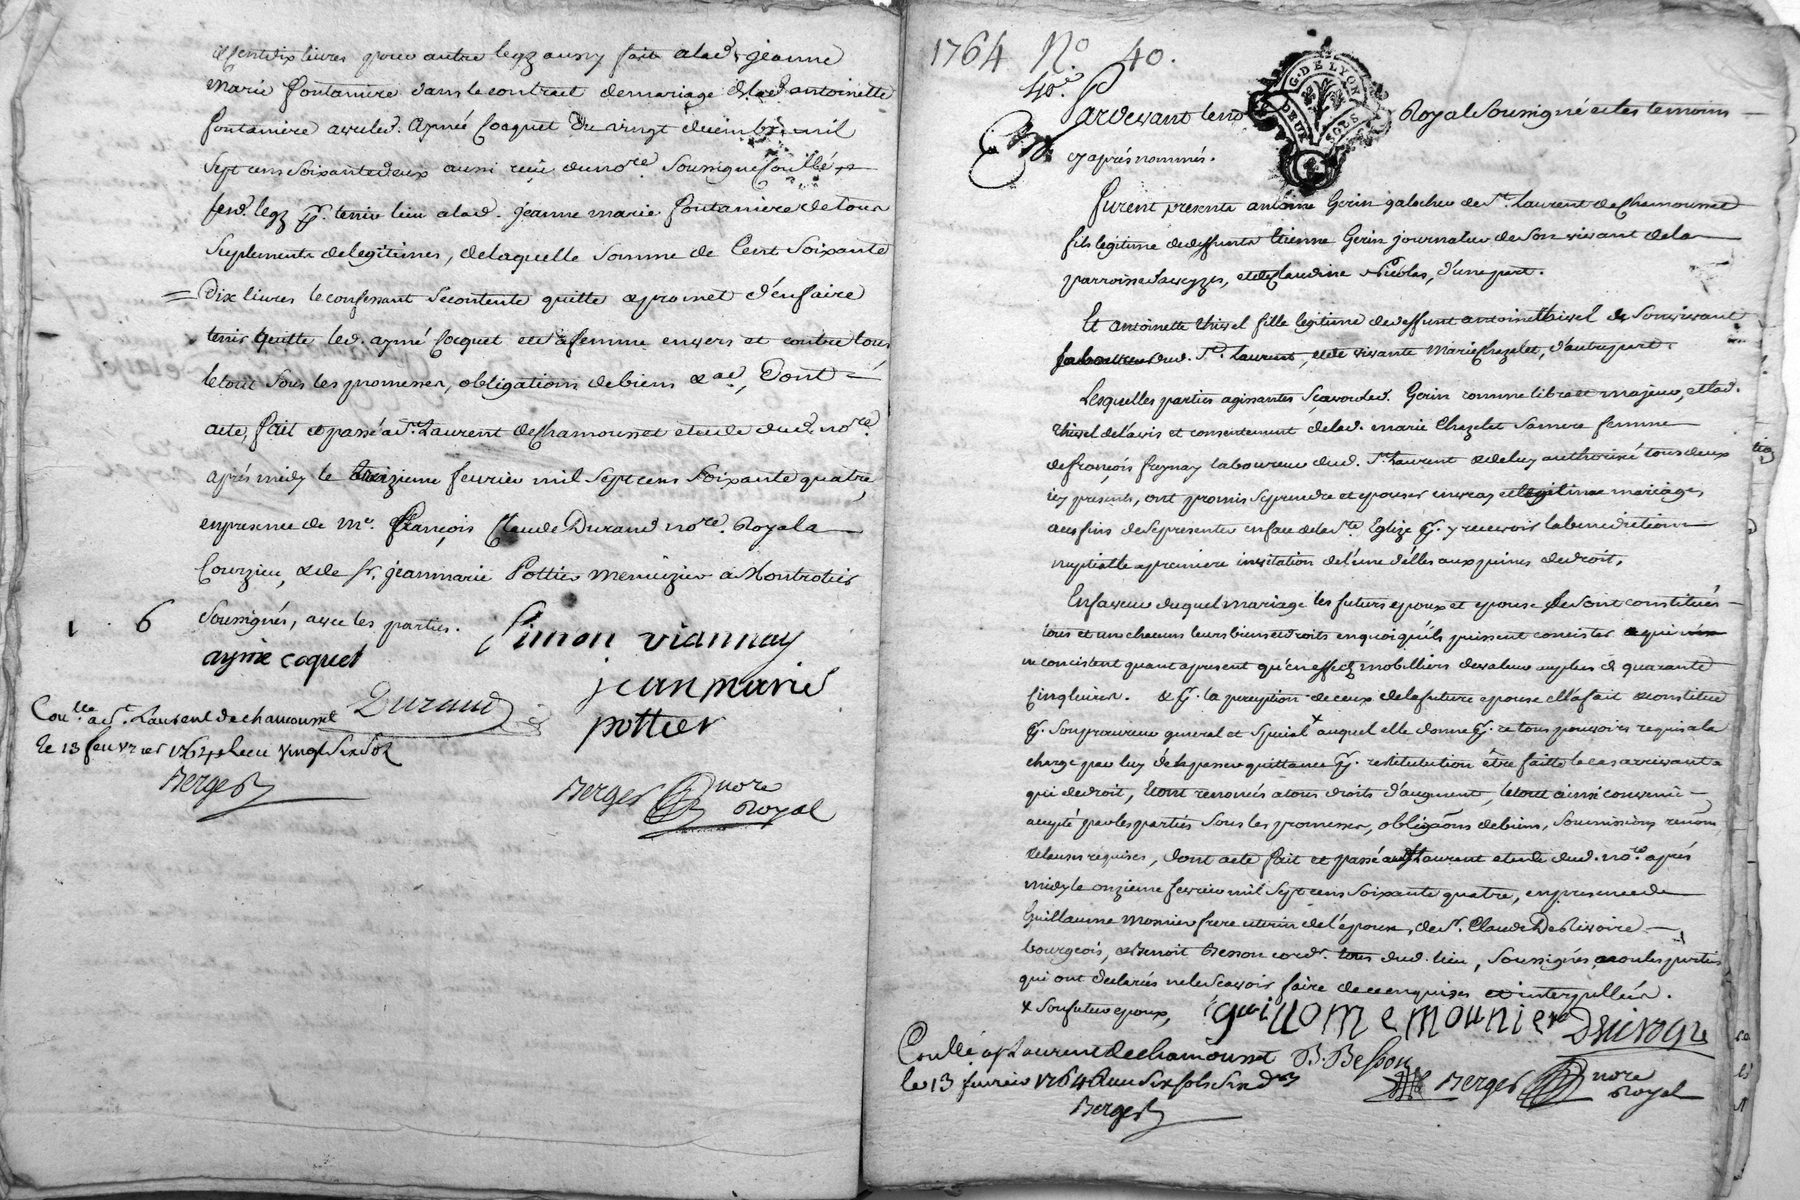 livres pour autre legz aussy fait a lad. jeanne
marie fontaniere dans le contrat de mariage de lad. antoinette
fontaniere avec led. Aymé Cocquet du vingt decembre mil
sept cens soixante deux aussi reçu dud. no.re soussigné
led. legz pr. tenir lieu a lad. jeanne marie fontaniere de tous
suplements de legitimes, de laquelle somme de Cent soixante
dix livres le confessant se contente quitte & promet d'en faire
tenir quitte led. aymé Cocquet et sa femme envers et contre tous
le tout sous les promesses, obligations de biens &a., Dont
acte, fait et passé a St. Laurent de Chamousset etude dud. no.re
après midy le treizieme fevrier mil sept cens soixante quatre,
en presence de me. françois Claude Durand no.re Royal a
Courzieu, & de sr. jean marie Pottier menuizier a Montrotier
soussignés, avec les parties.
1 . 6
aymé coquet
Simon viannay
jean marie
pottier
Durand
Con.lle a St. Laurent de chamousset
le 13 feuvrier 1764 Receu vingt six sols
Berger
Berger nore
Royal
1764 No. 40.
40.e
G. DE LYON
DEUX SOLS
Pardevant le no Royal Soussigné et les temoins
cy après nommés.
furent presents antoine Gerin galocheur de St. Laurent de Chamousset
fils legitime de deffunts Etienne Gerin journalier de son vivant de la
parroisse, et de Claudine Nicolas, d'une part.
Et antoinette thivel fille legitime de deffunt antoine thivel de son vivant
laboureur dud. St. Laurent, et de vivante Marie Chazelet, d'autre part.
Lesquelles parties agissantes sçavoir led. Gerin comme libre et majeur, et lad.
thivel de l'avis et consentement de lad. marie Chazelet sa mere femme
de françois freynay laboureur dud. St. Laurent & de luy authorisé tous deux
icy presents, ont promis se prendre et epouser en vray et legitime mariage,
aux fins de se presenter en face de la Ste. Eglize pr. y recevoir la benediction
nuptialle a premiere invitation de l'une d'elles aux peines de droit.
En faveur duquel mariage les futurs epoux et epouse se sont constitués
tous et un chacuns leurs biens et droits en quoi qu'ils puissent concister
ne concistent quant a present qu'en effects mobilliers de valeur au plus de quarante
Cinq livres. & pr. la perception de ceux de la future epouse elle a fait & constitué
pr. son procureur general et special + auquel elle donne pr. ce tous pouvoirs requis a la
charge par luy de la passer quittance pr. restitution être faitte le cas arrivant a
qui de droit, Et ont renoncés a tous droits d'augment, le tout ainsi convenu
accepté par les parties sous les promesses, obligãons de biens, soumissions renon
& clauses requises, dont acte fait et passé aud. St. Laurent etude dud. no.re après
midy le onzieme fevrier mil sept cens soixante quatre, en presence de
Guillaume Mosnier frere uterin de l'epouse, de Sr. Claude De Rivoire
bourgeois, & Benoit Besson cord.r tous dud. lieu, soussignés, non les parties
qui ont declarés ne le sçavoir faire de ce enquises et interpellées.
+ son futur epoux,
guillome mounier
Derivoire
B. Besson
Con.llé a St. Laurent de chamousset
le 13 fuvrier 1764 Receu six sols six drs
Berger
Berger nore
Royal